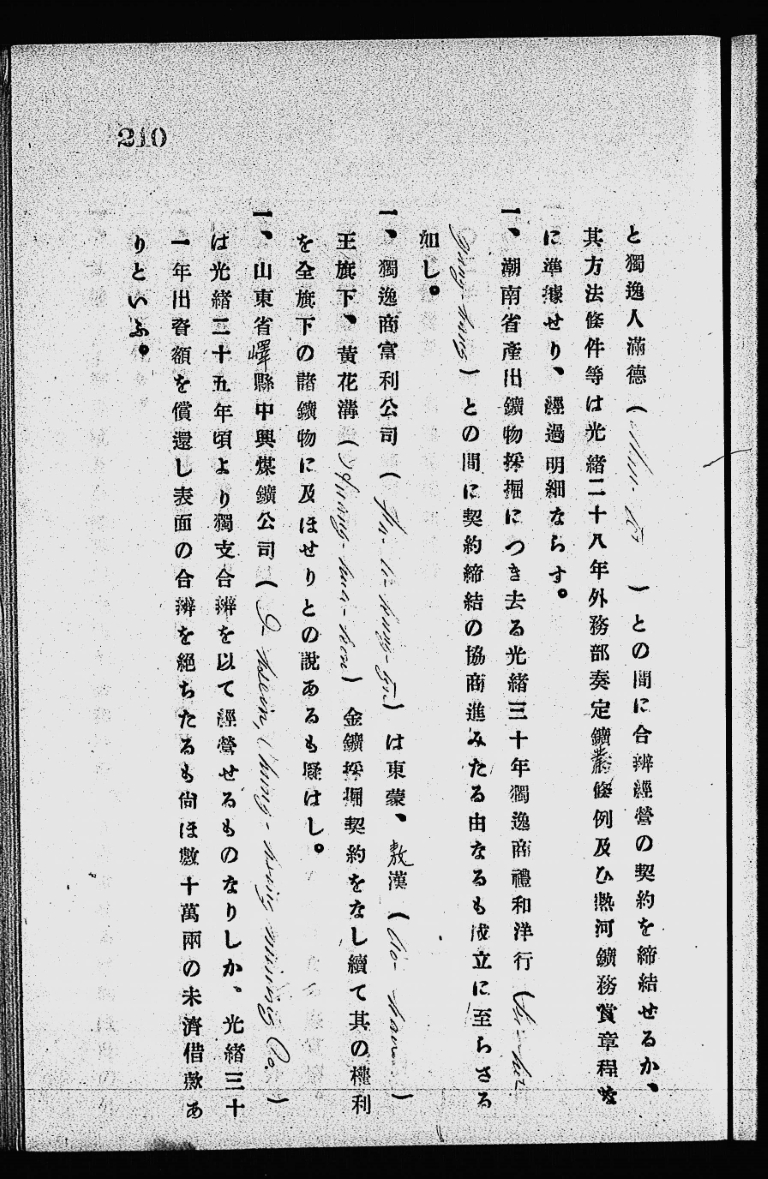 210
と獨逸人滿德（ ）との間に合辦經營の契約を締結せるか、
其方法條件等は光緒二十八年外務部奏定鑛業條例及ひ熱河鑛務賞章程等
に準據せり、經過明細ならす。
一、潮南省產出鑛物採掘につき去る光緒三十年獨逸商禮和洋行（
）との間に契約締結の協商進みたる由なるも成立に至らさる
如し。
一、獨逸商富利公司（Fu-li-kung-szu）は東蒙、敖漢（Ao-han）
王旗下、黄花溝（Huang-hua-kou）金鑛採掘契約をなし續て其の權利
を全旗下の諸鑛物に及ほせりとの說あるも疑はし。
一、山東省嶧縣中興煤鑛公司（I-hsein, Chung-hsing mining Co.）
は光緒二十五年頃より獨支合辦を以て經營せるものなりしか、光緒三十
一年出資額を償還し表面の合辦を絕ちたるも尙ほ數十萬兩の未濟借款あ
りといふ。